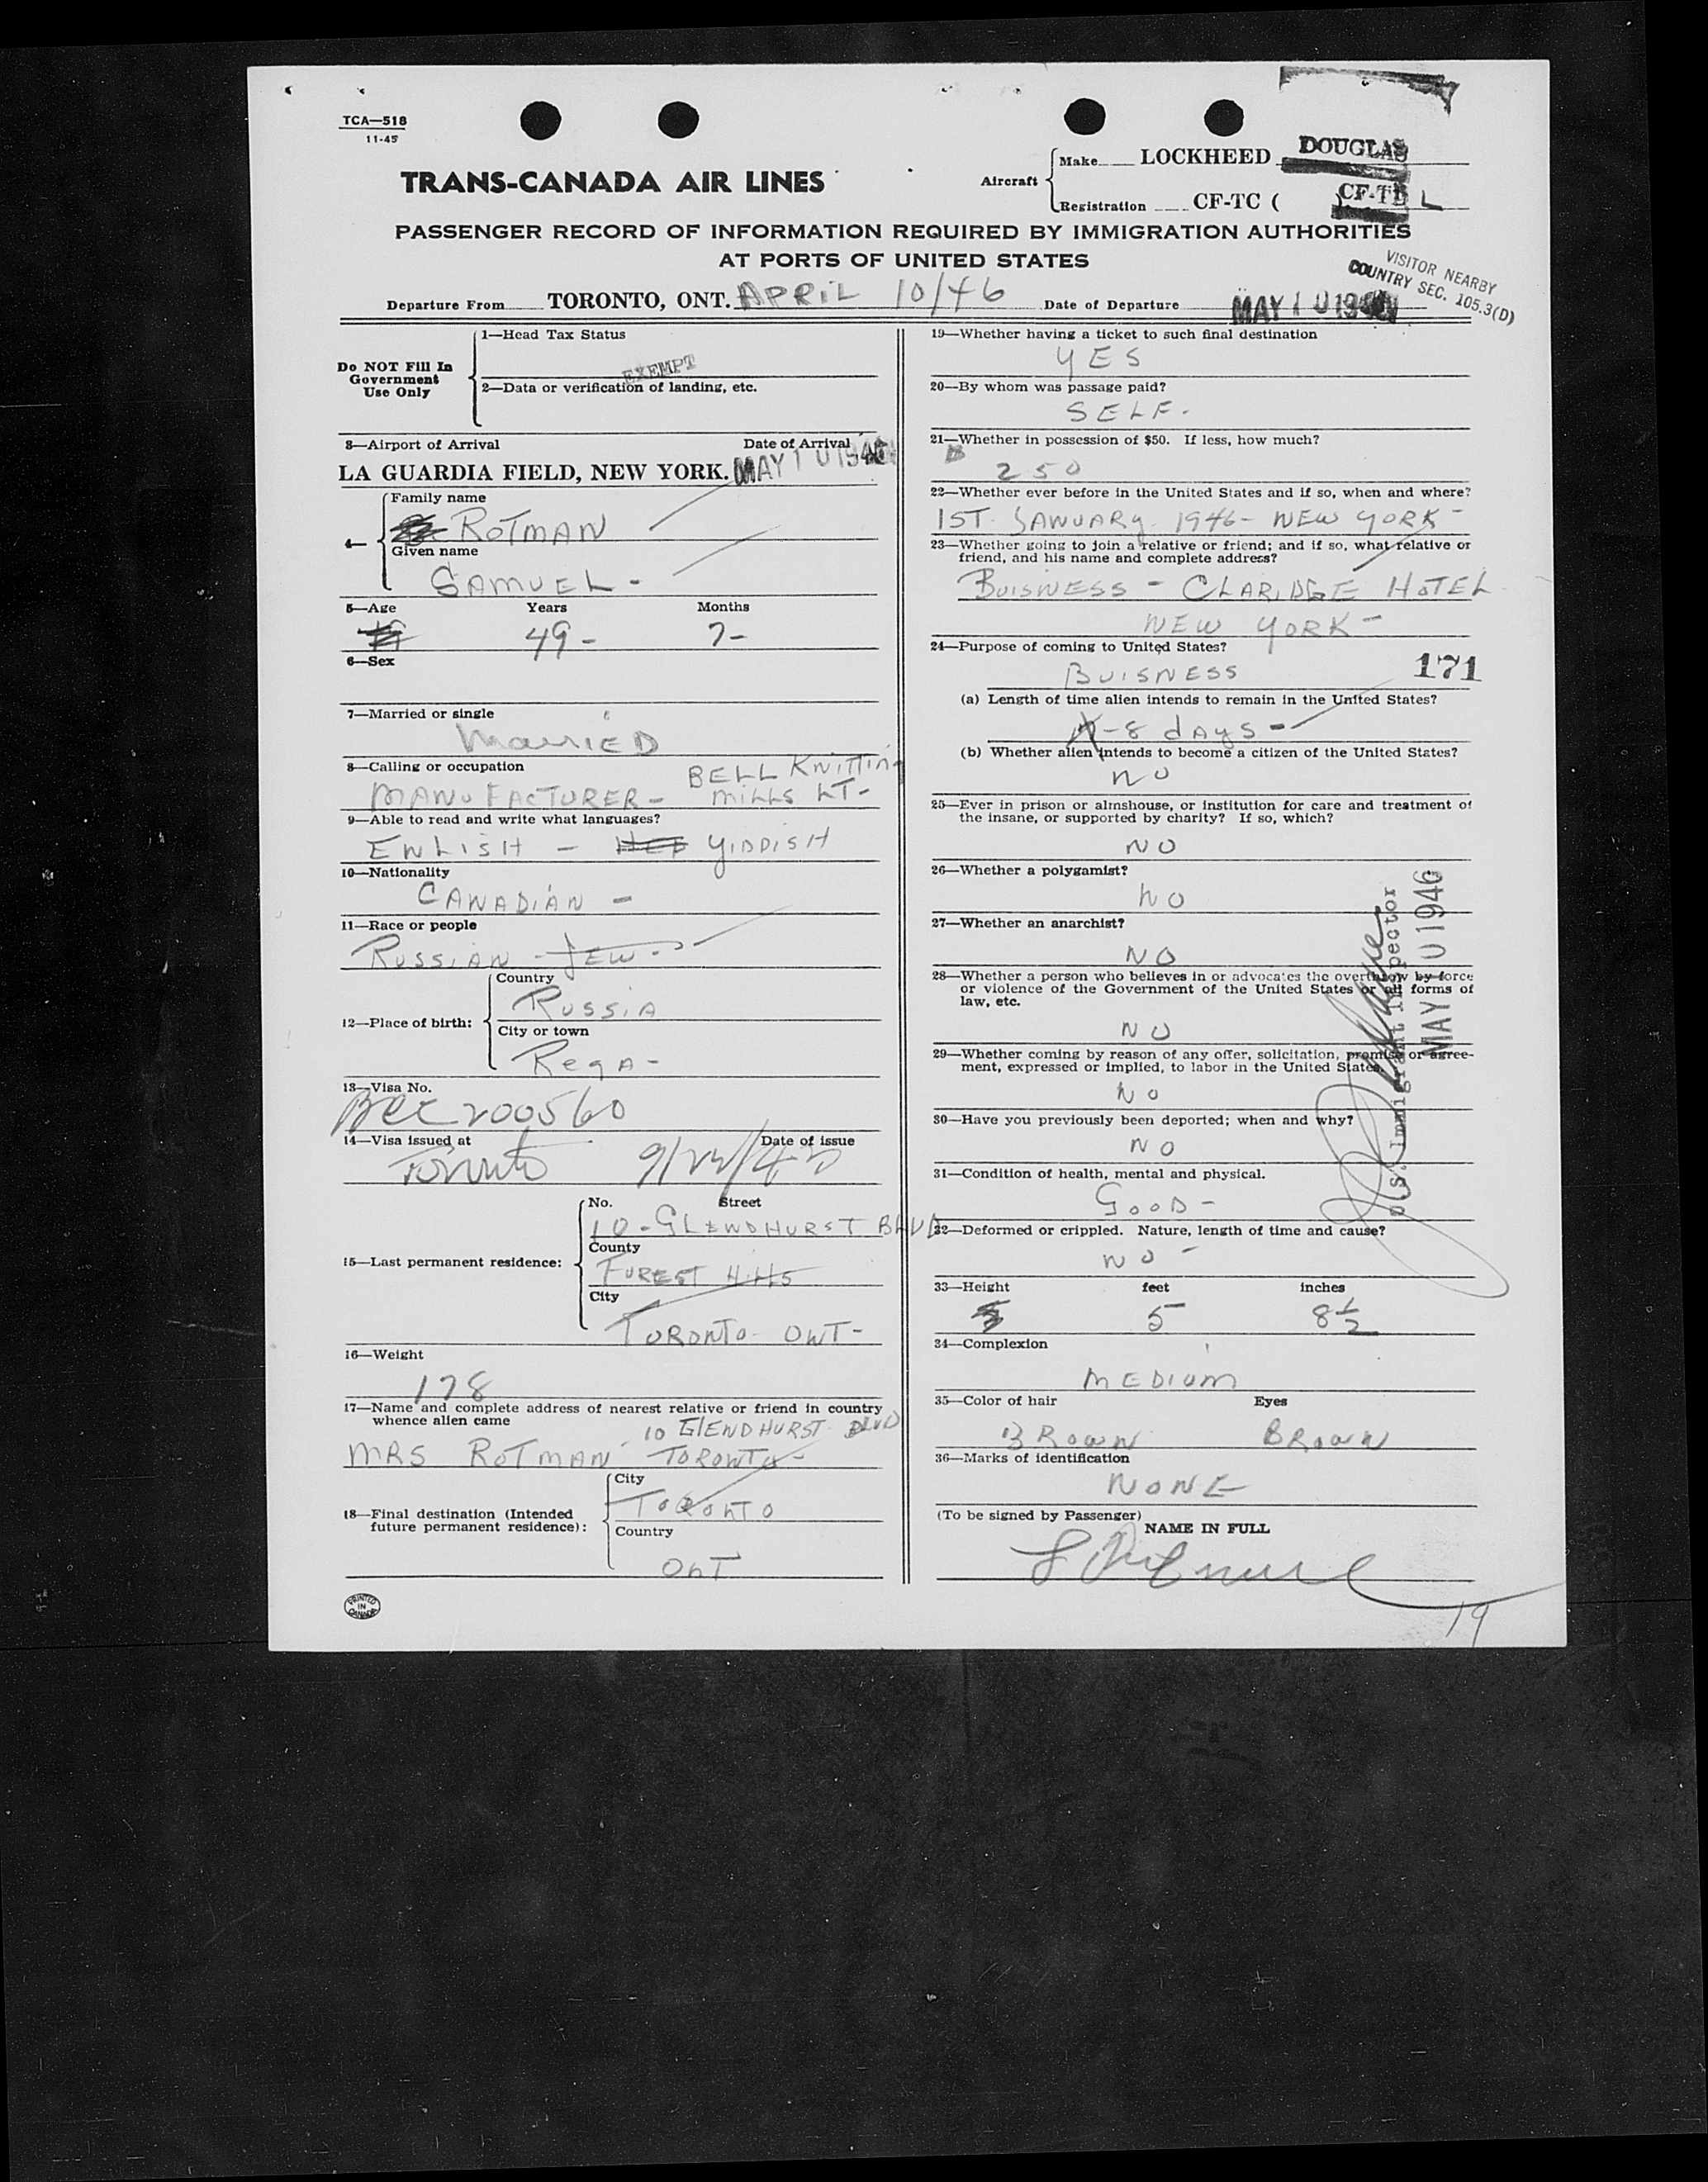 TCA—518
11-45
TRANS-CANADA AIR LINES
Aircraft
Make LOCKHEED DOUGLAS
Registration CF-TC ( CF-TD L
PASSENGER RECORD OF INFORMATION REQUIRED BY IMMIGRATION AUTHORITIES
AT PORTS OF UNITED STATES
VISITOR NEARBY
COUNTRY SEC. 105.3(D)
Departure From TORONTO, ONT. APRIL 10/46 Date of Departure MAY 10 194
Do NOT Fill In
Government
Use Only
1—Head Tax Status
EXEMPT
2—Data or verification of landing, etc.
3—Airport of Arrival Date of Arrival
LA GUARDIA FIELD, NEW YORK. MAY 10 1946
4—
Family name
ROTMAN
Given name
SAMUEL -
5—Age Years Months
49 - 7-
6—Sex
7—Married or single
MARRIED
8—Calling or occupation
MANUFACTURER - BELL KNITTING
MILLS LT-
9—Able to read and write what languages?
ENLISH - YIDDISH
10—Nationality
CANADIAN -
11—Race or people
RUSSIAN - JEW -
12—Place of birth:
Country
RUSSIA
City or town
REGA -
13—Visa No.
BCC 200560
14—Visa issued at Date of issue
Toronto
15—Last permanent residence:
No. Street
10 - GLENDHURST BLVD
County
FOREST HILLS
City
TORONTO - ONT -
16—Weight
178
17—Name and complete address of nearest relative or friend in country
whence alien came
10 GLENDHURST BLVD
MRS ROTMAN - TORONTO -
18—Final destination (Intended
future permanent residence):
City
TORONTO
Country
ONT
PRINTED
IN
CANADA
19—Whether having a ticket to such final destination
YES
20—By whom was passage paid?
SELF -
21—Whether in possession of $50. If less, how much?
250
22—Whether ever before in the United States and if so, when and where?
1ST. JANUARY. 1946 - NEW YORK -
23—Whether going to join a relative or friend; and if so, what relative or
friend, and his name and complete address?
BUISNESS - CLARIDGE HOTEL
NEW YORK -
24—Purpose of coming to United States?
BUISNESS
171
(a) Length of time alien intends to remain in the United States?
-8 dAYS -
(b) Whether alien intends to become a citizen of the United States?
NO
25—Ever in prison or almshouse, or institution for care and treatment of
the insane, or supported by charity? If so, which?
NO
26—Whether a polygamist?
NO
27—Whether an anarchist?
NO
28—Whether a person who believes in or advocates the overthrow by force
or violence of the Government of the United States or all forms of
law, etc.
NO
29—Whether coming by reason of any offer, solicitation, promise or agree-
ment, expressed or implied, to labor in the United States.
NO
30—Have you previously been deported; when and why?
NO
31—Condition of health, mental and physical.
GOOD -
32—Deformed or crippled. Nature, length of time and cause?
NO -
U.S. Immigrant Inspector
MAY 10 1946
33—Height feet inches
5 8 1/2
34—Complexion
MEDIUM
35—Color of hair Eyes
BROWN BROWN
36—Marks of identification
NONE
(To be signed by Passenger)
NAME IN FULL
19